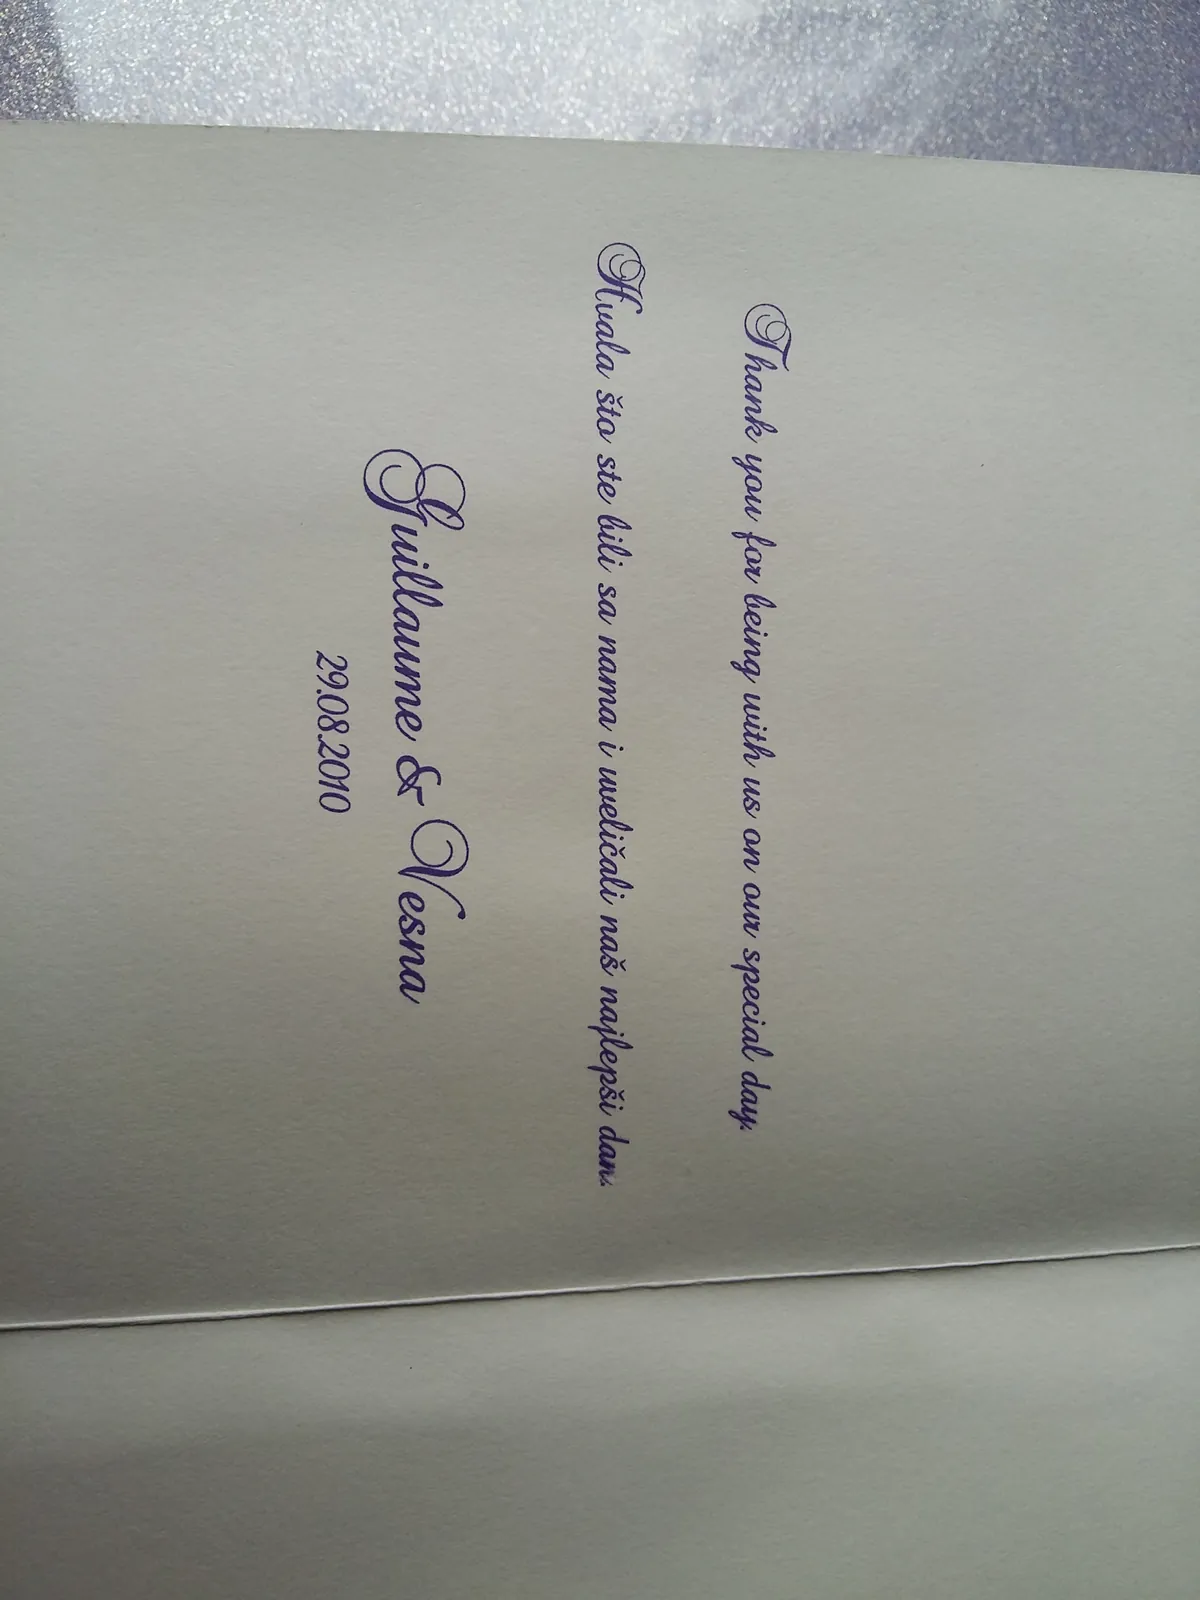 Thank you for being with us on our special day.
Hvala što ste bili sa nama i uveličali naš najlepši dan.
Guillaume & Vesna
29.08.2010